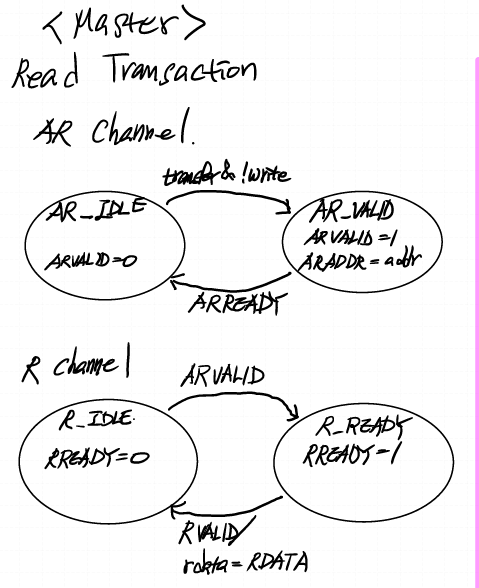 <Master>
Read Transaction
AR Channel.
transfer & !write
AR_IDLE
ARVALID=0
AR_VALID
ARVALID=1
ARADDR=addr
ARREADY
R channel
ARVALID
R_IDLE.
RREADY=0
R_READY
RREADY=1
RVALID/
rdata=RDATA